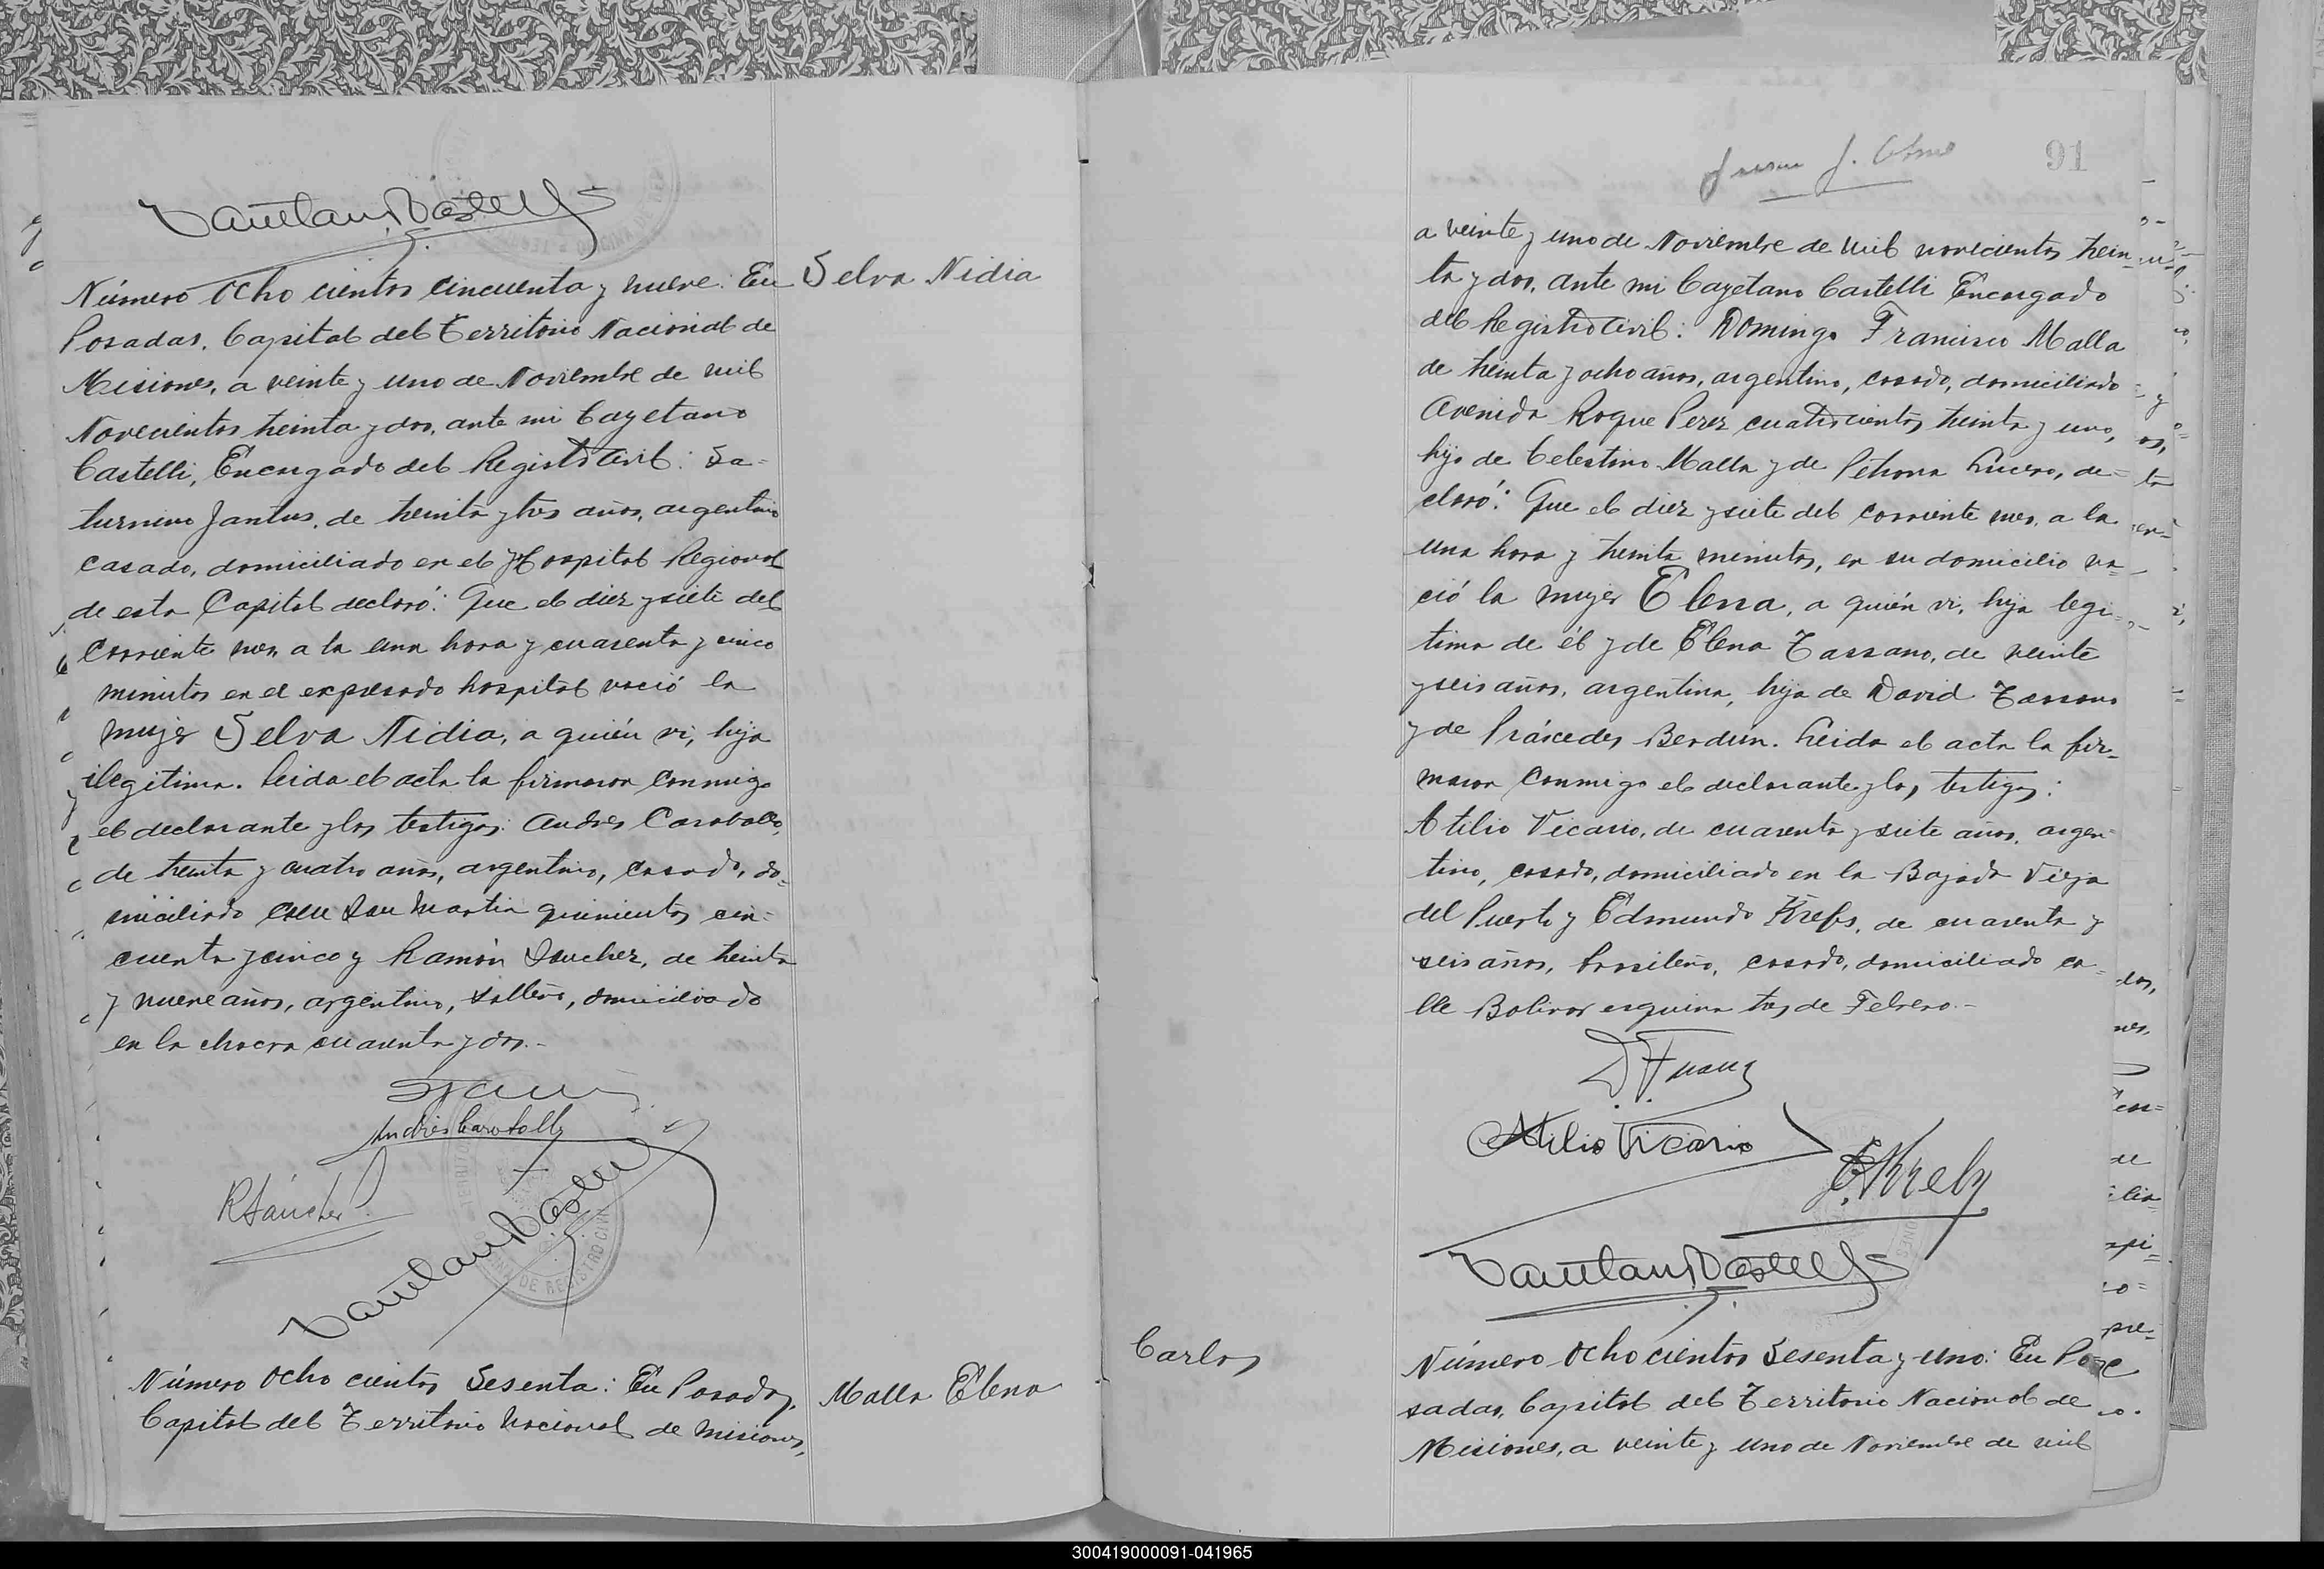 Número ocho cientos cincuenta y nueve: En
Selva Nidia
Posadas, Capital del Territorio Nacional de
Misiones, a veinte y uno de Noviembre de mil
novecientos treinta y dos, ante mi Cayetano
Castelli, Encargado del Registro Civil: Sa-
turnino Jantus, de treinta y tres años, argentino
casado, domiciliado en el Hospital Regional
de esta Capital declaró: Que el diez y siete del
corriente mes, a la una hora y cuarenta y cinco
minutos en el expresado hospital nació la
mujer Selva Nidia, a quién vi, hija
ilegitima. Leida el acta la firmaron conmigo
el declarante y los testigos: Andrés Caraballo,
de treinta y cuatro años, argentino, casado, do-
miciliado calle San Martin quinientos cin-
cuenta y cinco y Ramón Sanchez, de treinta
y nueve años, argentino, soltero, domiciliado
en la chacra cuarenta y dos.-
Andrés Caraballo
R Sánchez
Número ocho cientos Sesenta: En Posadas,
Malla Elena
Capital del Territorio Nacional de Misiones,
91
a veinte y uno de Noviembre de mil novecientos trein-
ta y dos, ante mi Cayetano Castelli Encargado
del Registro Civil: Domingo Francisco Malla
de treinta y ocho años, argentino, casado, domiciliado
Avenida Roque Perez cuatrocientos treinta y uno,
hijo de Celestino Malla y de Petrona Lucero, de-
claró: Que el diez y siete del corriente mes, a la
una hora y treinta minutos, en su domicilio na-
ció la mujer Elena, a quién vi, hija legi-
tima de él y de Elena Tassano, de veinte
y seis años, argentina, hija de David Tassano
y de Práxcedes Berdun. Leida el acta la fir-
maron conmigo el declarante y los testigos:
Atilio Vicario, de cuarenta y siete años, argen-
tino, casado, domiciliado en la Bajada Vieja
del Puerto y Edmundo Krebs, de cuarenta y
seis años, brasileño, casado, domiciliado ca-
lle Bolivar esquina tres de Febrero.-
Atilio Vicario
E. Krebs
Carlos
Número ocho cientos Sesenta y uno: En Po-
sadas, Capital del Territorio Nacional de
Misiones, a veinte y uno de Noviembre de mil
300419000091-041965